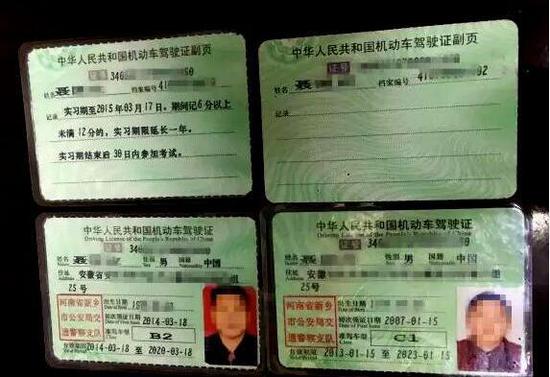 中华人民共和国机动车驾驶证副页
证号 340
姓名 聂
档案编号 41
记录
实习期至2015年03月17日。期间记6分以上
未满12分的，实习期限延长一年。
实习期结束后30日内参加考试。
中华人民共和国机动车驾驶证副页
证号
姓名 聂
档案编号
记录
中华人民共和国机动车驾驶证
Driving License of the People's Republic of China
证号 340
姓名 聂
性别 男 国籍 中国
住址 安徽省
Address
组
25号
河南省新乡
市公安局交
通警察支队
出生日期
Date of Birth
初次领证日期 2014-03-18
准驾车型 B2
Class
有效期限 2014-03-18 至 2020-03-18
中华人民共和国机动车驾驶证
Driving License of the People's Republic of China
证号 340
姓名 聂
性别 男 国籍 中国
住址 安徽
Address
组
25号
河南省新乡
市公安局交
通警察支队
出生日期
Date of Birth
初次领证日期 2007-01-15
准驾车型 C1
Class
有效期限 2013-01-15 至 2023-01-15